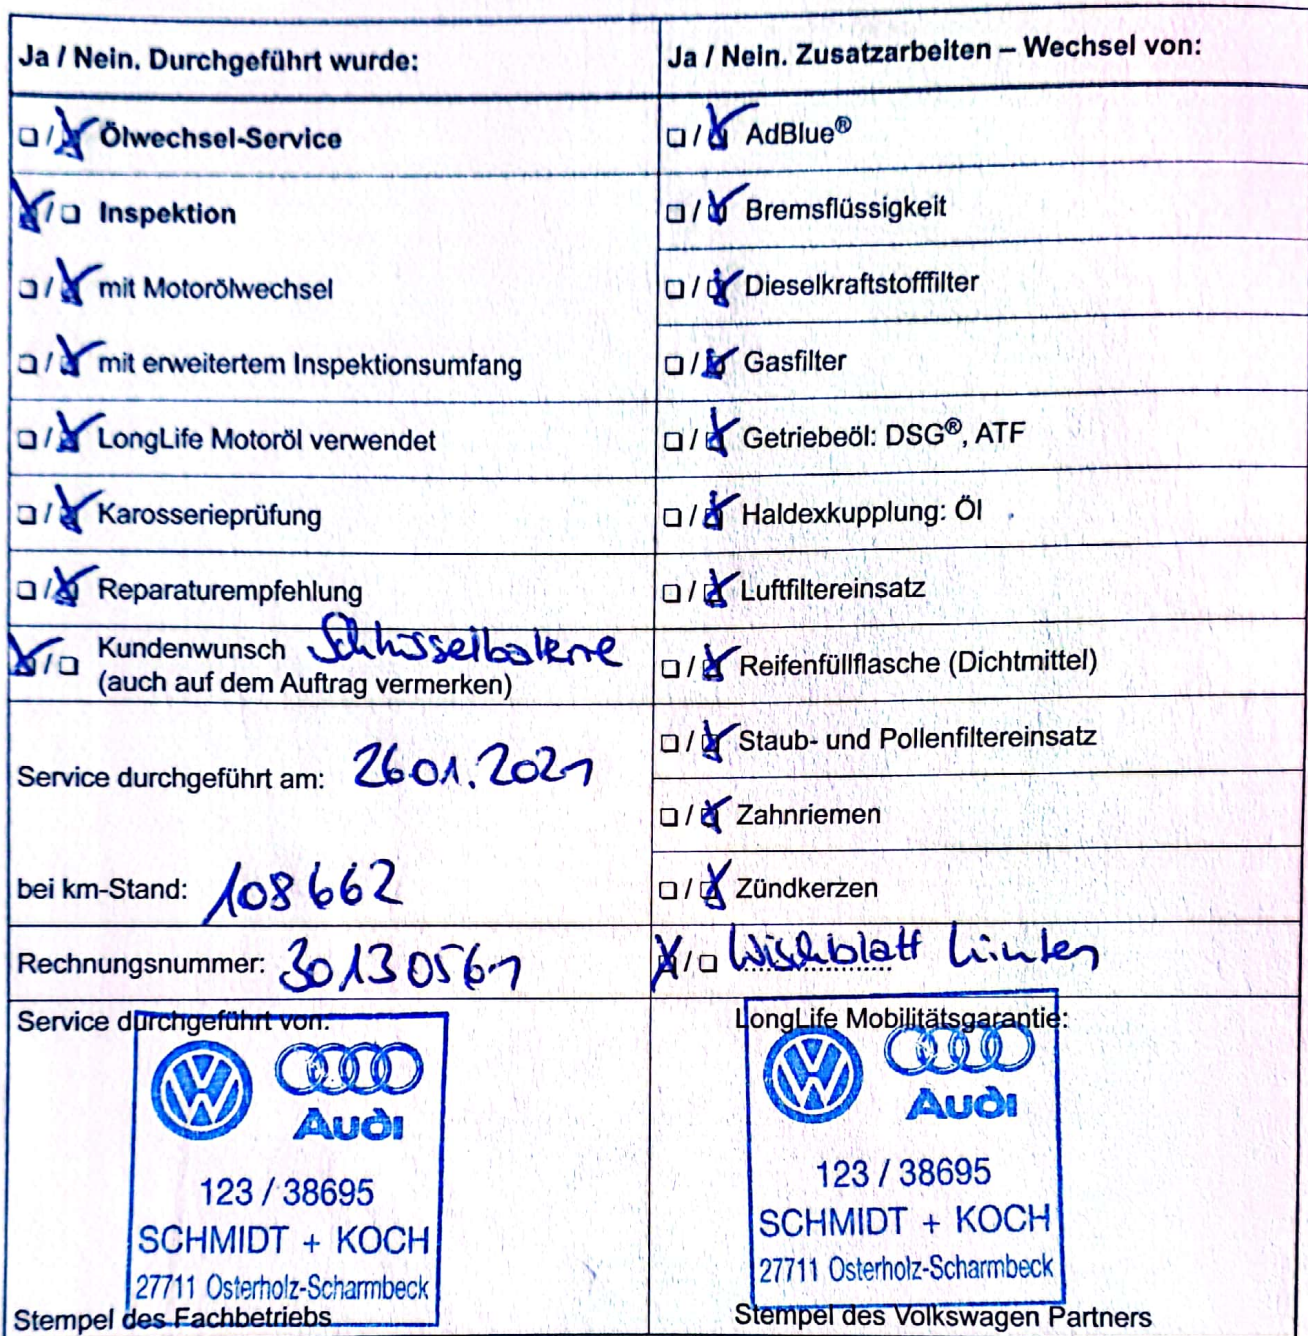 Ja / Nein. Durchgeführt wurde:
☐ / ☒ Ölwechsel-Service
☒ / ☐ Inspektion
☐ / ☒ mit Motorölwechsel
☐ / ☒ mit erweitertem Inspektionsumfang
☐ / ☒ LongLife Motoröl verwendet
☐ / ☒ Karosserieprüfung
☐ / ☒ Reparaturempfehlung
☒ / ☐ Kundenwunsch Schlüsselbatterie
(auch auf dem Auftrag vermerken)
Service durchgeführt am: 26.01.2021
bei km-Stand: 108662
Rechnungsnummer: 30130561
Service durchgeführt von:
Audi
123 / 38695
SCHMIDT + KOCH
27711 Osterholz-Scharmbeck
Stempel des Fachbetriebs
Ja / Nein. Zusatzarbeiten – Wechsel von:
☐ / ☒ AdBlue®
☐ / ☒ Bremsflüssigkeit
☐ / ☒ Dieselkraftstofffilter
☐ / ☒ Gasfilter
☐ / ☒ Getriebeöl: DSG®, ATF
☐ / ☒ Haldexkupplung: Öl
☐ / ☒ Luftfiltereinsatz
☐ / ☒ Reifenfüllflasche (Dichtmittel)
☐ / ☒ Staub- und Pollenfiltereinsatz
☐ / ☒ Zahnriemen
☐ / ☒ Zündkerzen
☒ / ☐ Wischblatt hinten
LongLife Mobilitätsgarantie:
Audi
123 / 38695
SCHMIDT + KOCH
27711 Osterholz-Scharmbeck
Stempel des Volkswagen Partners